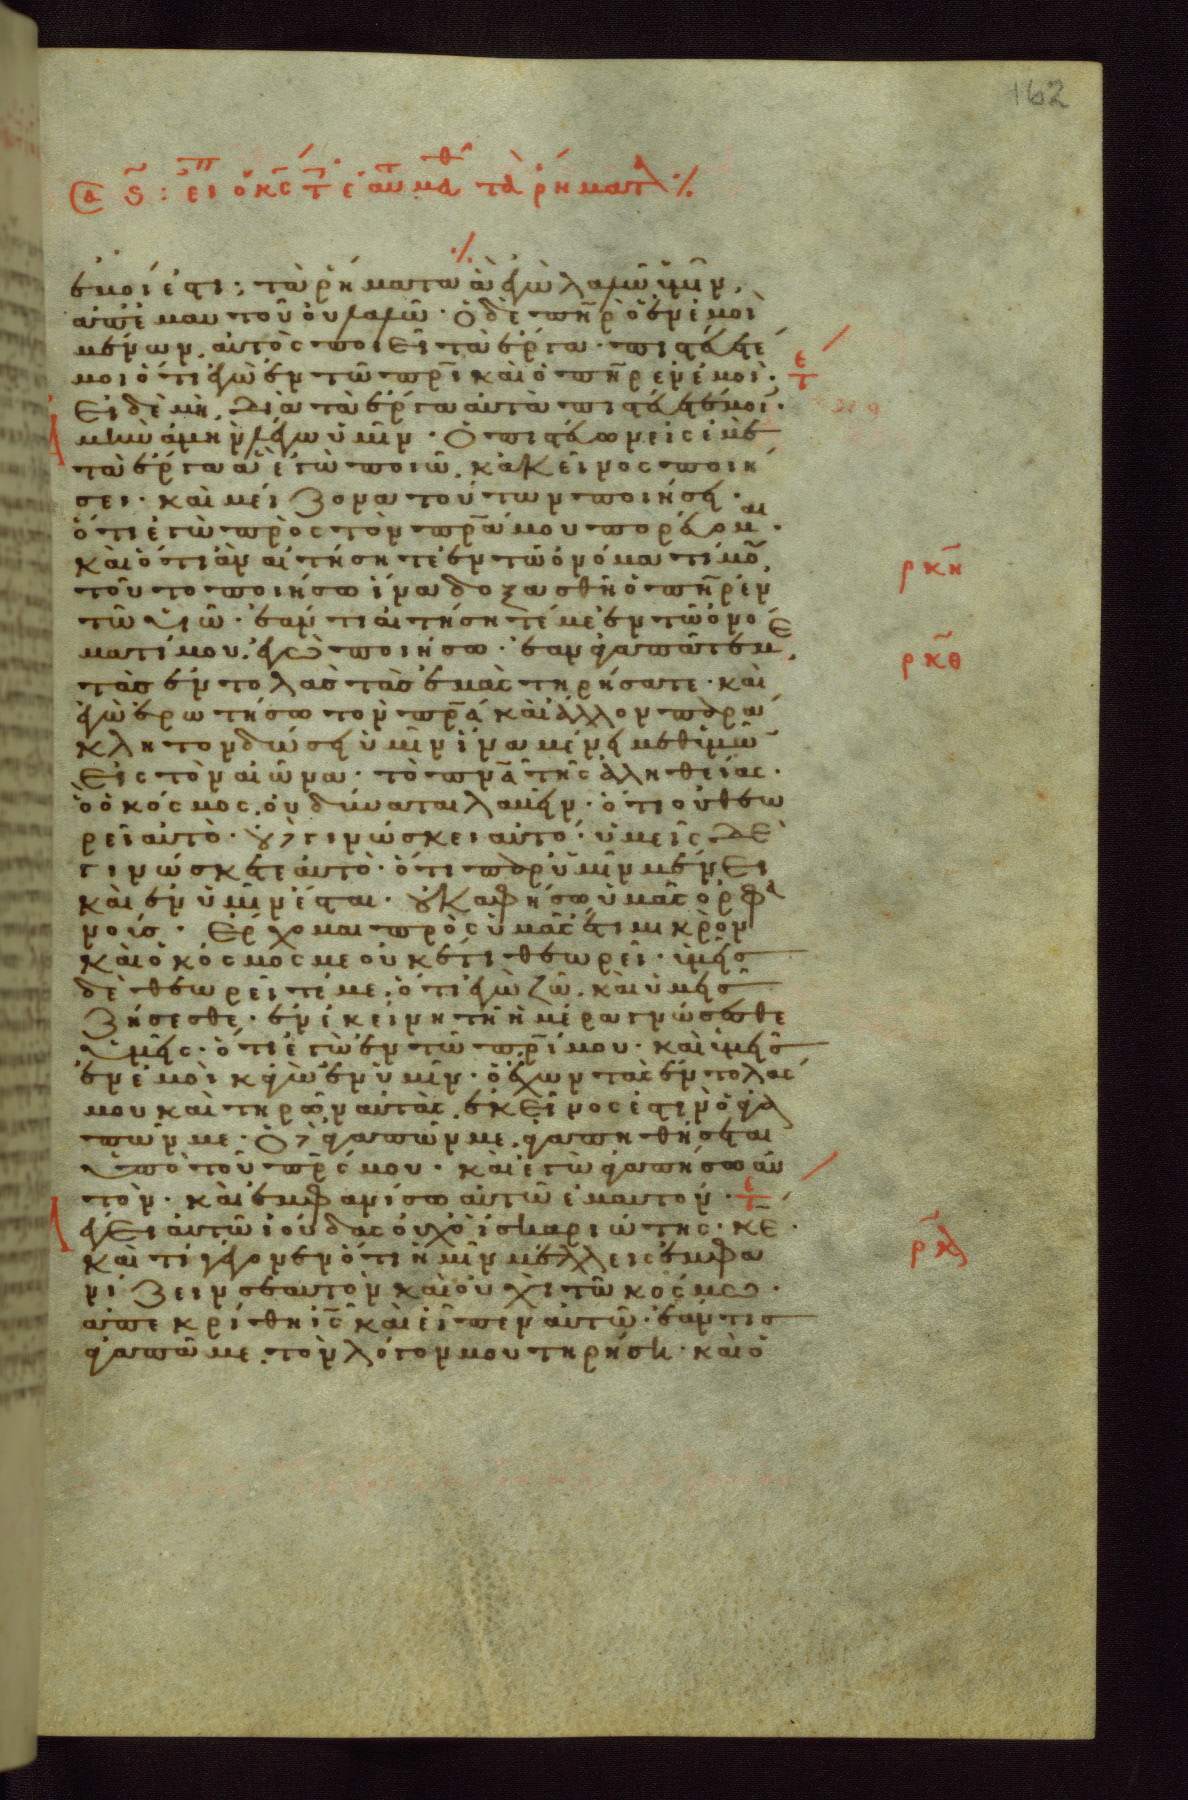 162
ἐμοί ἐστι· τὰ ῥήματα ἃ ἐγὼ λαλῶ ὑμῖν,
ἀπ' ἐμαυτοῦ οὐ λαλῶ· ὁ δὲ πηρ ὁ ἐν ἐμοὶ
μένων, αὐτὸς ποιεῖ τὰ ἔργα· πιστεύετέ
μοι ὅτι ἐγὼ ἐν τῶ πρι καὶ ὁ πηρ ἐν ἐμοί·
εἰ δὲ μὴ, διὰ τὰ ἔργα αὐτὰ πιστεύετέ μοι·
ἀμὴν ἀμὴν λέγω ὑμῖν· ὁ πιστεύων εἰς ἐμὲ
τὰ ἔργα ἃ ἐγὼ ποιῶ, κἀκεῖνος ποιή
σει· καὶ μείζονα τούτων ποιήσει·
ὅτι ἐγὼ πρὸς τὸν πρα μου πορεύομαι·
καὶ ὅ τι ἂν αἰτήσητε ἐν τῶ ὀνόματί μου,
τοῦτο ποιήσω ἵνα δοξασθῆ ὁ πηρ ἐν
τῶ υἱῶ· ἐάν τι αἰτήσητέ με ἐν τῶ ὀνό
ματί μου, ἐγὼ ποιήσω· ἐὰν ἀγαπᾶτέ με,
τὰς ἐντολὰς τὰς ἐμὰς τηρήσατε· καὶ
ἐγὼ ἐρωτήσω τὸν πρα καὶ ἄλλον παρά
κλητον δώσει ὑμῖν ἵνα μένει μεθ' ὑμῶν
εἰς τὸν αἰῶνα· τὸ πνα τῆς ἀληθείας·
ὃ ὁ κόσμος οὐ δύναται λαβεῖν· ὅτι οὐ θεω
ρεῖ αὐτὸ· οὐδὲ γινώσκει αὐτό· ὑμεῖς δὲ
γινώσκετε αὐτὸ· ὅτι παρ' ὑμῖν μένει
καὶ ἐν ὑμῖν ἔσται· οὐκ ἀφήσω ὑμᾶς ὀρφα
νούς· ἔρχομαι πρὸς ὑμᾶς ἔτι μικρὸν
καὶ ὁ κόσμος με οὐκέτι θεωρεῖ· ὑμεῖς
δὲ θεωρεῖτέ με· ὅτι ἐγὼ ζῶ, καὶ ὑμεῖς
ζήσεσθε· ἐν ἐκείνη τῆ ἡμέρα γνώσεσθε
ὑμεῖς· ὅτι ἐγὼ ἐν τῶ πρι μου· καὶ ὑμεῖς
ἐν ἐμοὶ κἀγὼ ἐν ὑμῖν· ὁ ἔχων τὰς ἐντολάς
μου καὶ τηρῶν αὐτὰς, ἐκεῖνος ἐστιν ὁ ἀγα
πῶν με· ὁ δὲ ἀγαπῶν με, ἀγαπηθήσεται
ὑπὸ τοῦ πρς μου· καὶ ἐγὼ ἀγαπήσω αὐ
τὸν· καὶ ἐμφανίσω αὐτῶ ἐμαυτόν·
λέγει αὐτῶ ἰούδας οὐχ ὁ ἰσκαριώτης· κε·
καὶ τί γέγονεν ὅτι ἡμῖν μέλλεις ἐμφα
νίζειν σεαυτὸν καὶ οὐχὶ τῶ κόσμω·
ἀπεκρίθη ις καὶ εἶπεν αὐτῶ· ἐάν τις
ἀγαπᾶ με, τὸν λόγον μου τηρήσει· καὶ ὁ
ρκη
ρκθ
ρλ